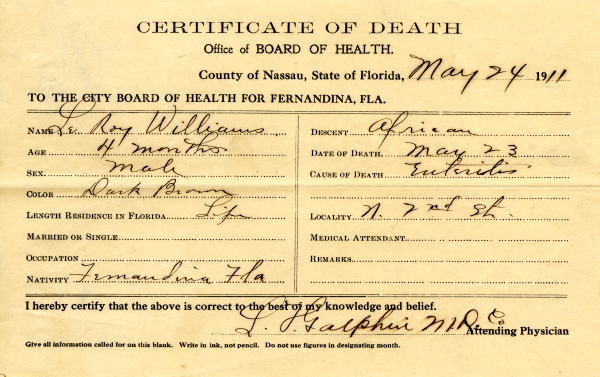 CERTIFICATE OF DEATH
Office of BOARD OF HEALTH.
County of Nassau, State of Florida, May 24 1911
TO THE CITY BOARD OF HEALTH FOR FERNANDINA, FLA.
NAME Le Roy Williams
AGE 4 months
SEX. Male
COLOR Dark Brown
LENGTH RESIDENCE IN FLORIDA Life
MARRIED OR SINGLE
OCCUPATION
NATIVITY Fernandina Fla
DESCENT African
DATE OF DEATH. May 23
CAUSE OF DEATH Enteritis
LOCALITY N. 2nd St.
MEDICAL ATTENDANT
REMARKS
I hereby certify that the above is correct to the best of my knowledge and belief.
Galphin M.D. Attending Physician
Give all information called for on this blank. Write in ink, not pencil. Do not use figures in designating month.